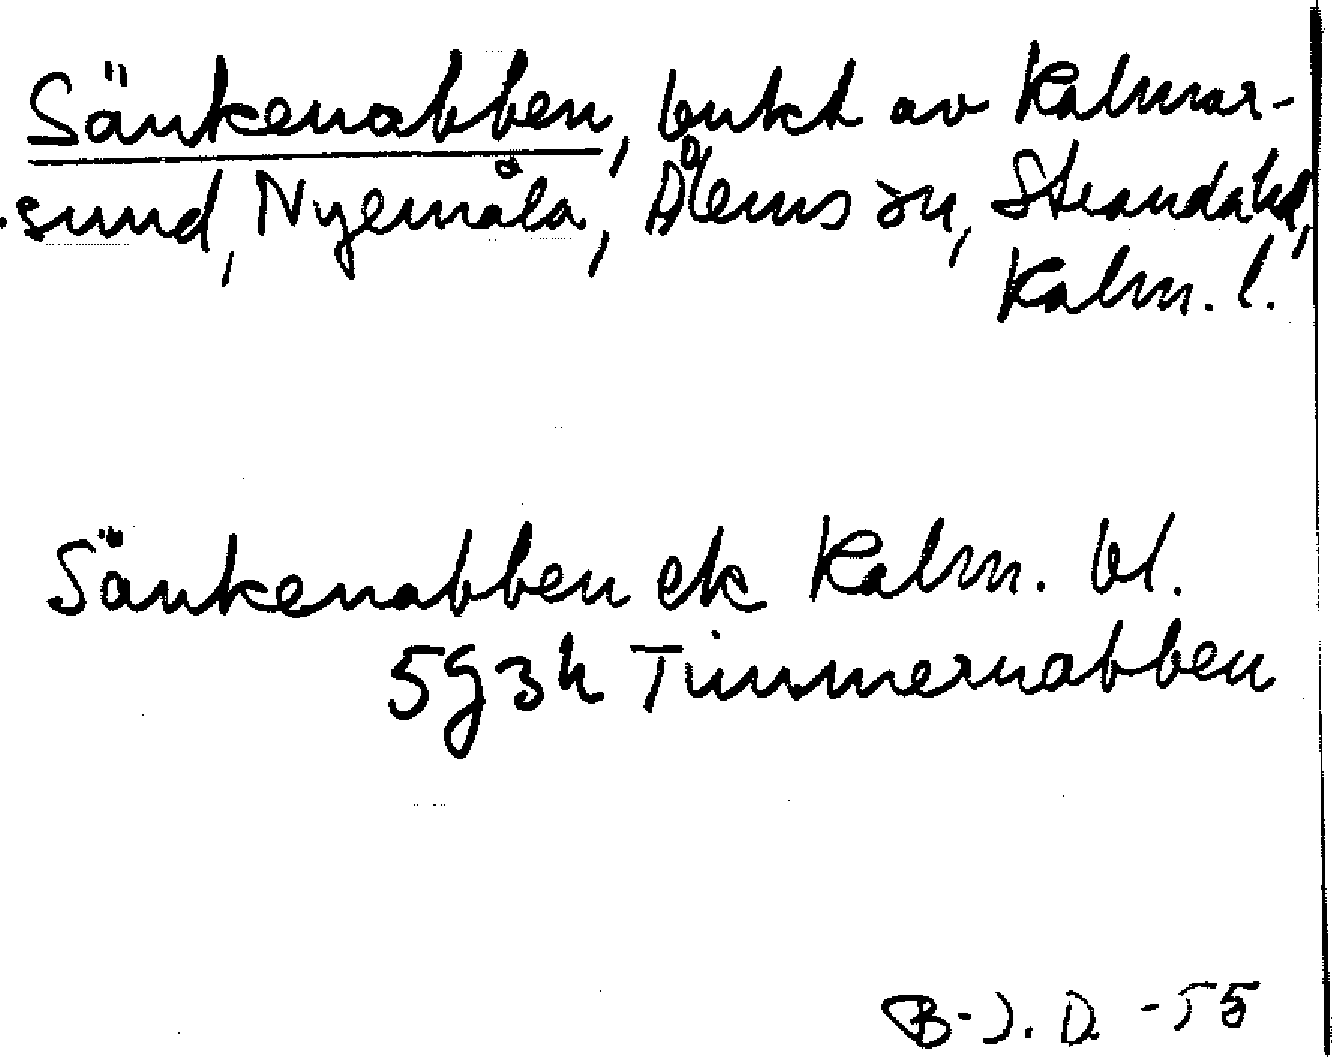 Sänkenabben, bukt av Kalmar-
sund, Nyemåla, Ålems sn, Strandahd,
Kalm. l.
Sänkenabben ek Kalm. bl.
5g3h Timmernabben
B-J. D. -55